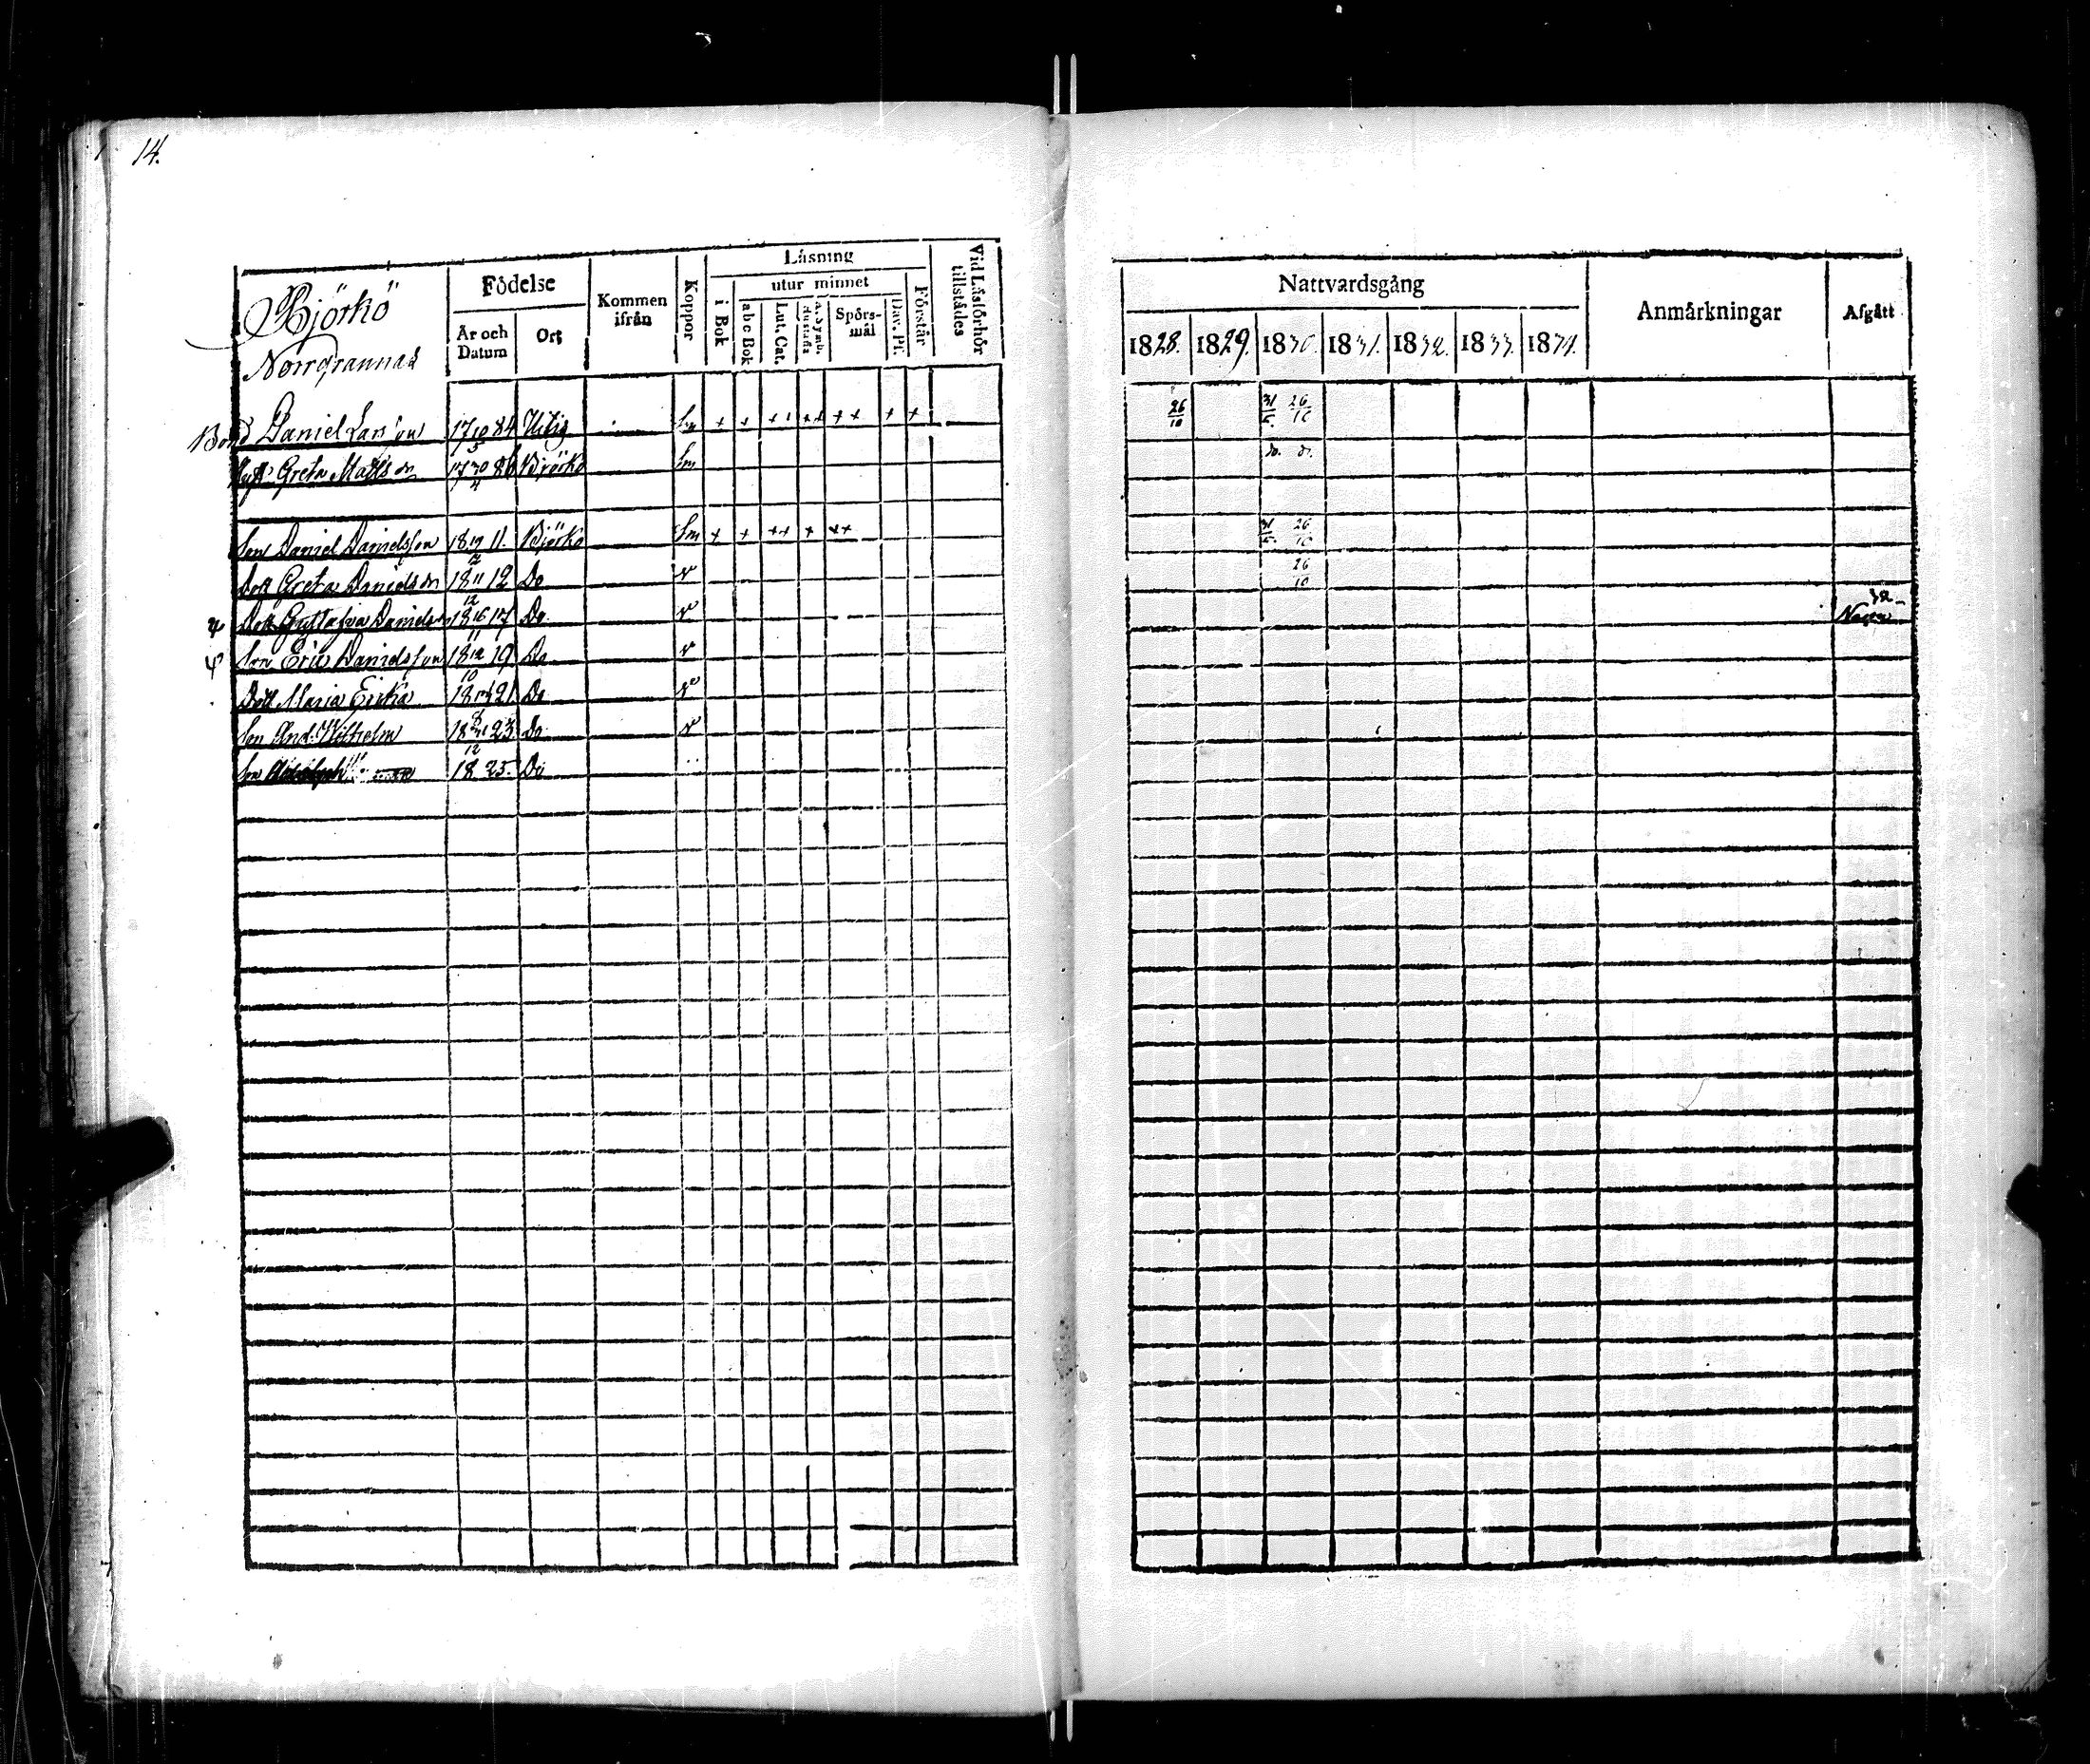 14.
Björkö
Norrgrannas
Födelse
År och Datum
Ort
Kommen ifrån
Koppor
Låsning
i Bok
utur minnet
abc Bok
Lut. Cat.
Spörs-mål
Dav. Ps.
Förstår
Vid Låsförhör tillstådes
Nattvardsgång
1828. 1829. 1830. 1831. 1832. 1833. 1834.
Anmårkningar
Afgått
Bond Daniel Larsson 17 10/5 84 Sm + + ++ ++ ++ + + 26/10 31/5 26/10
Greta Matts dr 17 30/4 86 Björkö Sm do. do.
Son Daniel Danielsson 18 19/2 11. Björkö Sm + + ++ + ++ 31/5 26/10
Dott Greta Daniels dr 18 11/12 12 Do v 26/10
Dott Gustafva Daniels dr 18 16/11 17 Do v 32
Son Eric Danielsson 18 12/10 19 Do v
Dott Maria Erika 18 21. Do v
Son And: Wilhelm 18 23 Do v
Son 18 25. Do